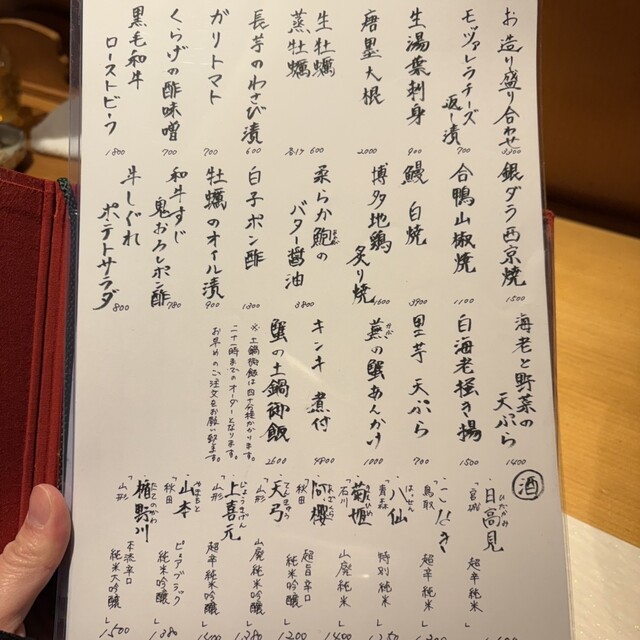 お造り盛り合わせ
モッツァレラチーズ返し漬 700
生湯葉刺身 900
唐墨大根 2000
生牡蠣 600
蒸牡蠣
長芋のわさび漬 600
ガリトマト 700
くらげの酢味噌 700
黒毛和牛ローストビーフ 1800
銀ダラ西京焼 1500
合鴨山椒焼 1100
鰻白焼 3900
博多地鶏炙り焼 1600
柔らか鮑のバター醤油 3800
白子ポン酢 1300
牡蠣のオイル漬 900
和牛すじ鬼おろしポン酢 780
牛しぐれポテトサラダ 800
海老と野菜の天ぷら 1400
白海老掻き揚 1500
里芋天ぷら 700
蕪の蟹あんかけ 1000
キンキ煮付 4800
蟹の土鍋御飯 2600
※土鍋御飯は四十分程かかります。
二十一時までのオーダーとなります。
お早めのご注文をお願い致します。
酒
・日高見 ひたかみ 「宮城」 超辛純米
鳥取 超辛純米
・八仙 はっせん 「青森」 特別純米
・菊姫 きくひめ 「石川」 山廃純米 1400
・阿櫻 「秋田」 超旨辛口 純米吟醸 1200
・天弓 てんきゅう 「山形」 山廃純米吟醸 1380
・上喜元 じょうきげん 「山形」 超辛純米吟醸 1400
・山本 やまもと 「秋田」 ピュアブラック 純米吟醸 1380
・楯野川 たてのかわ 「山形」 本流辛口 純米大吟醸 1500